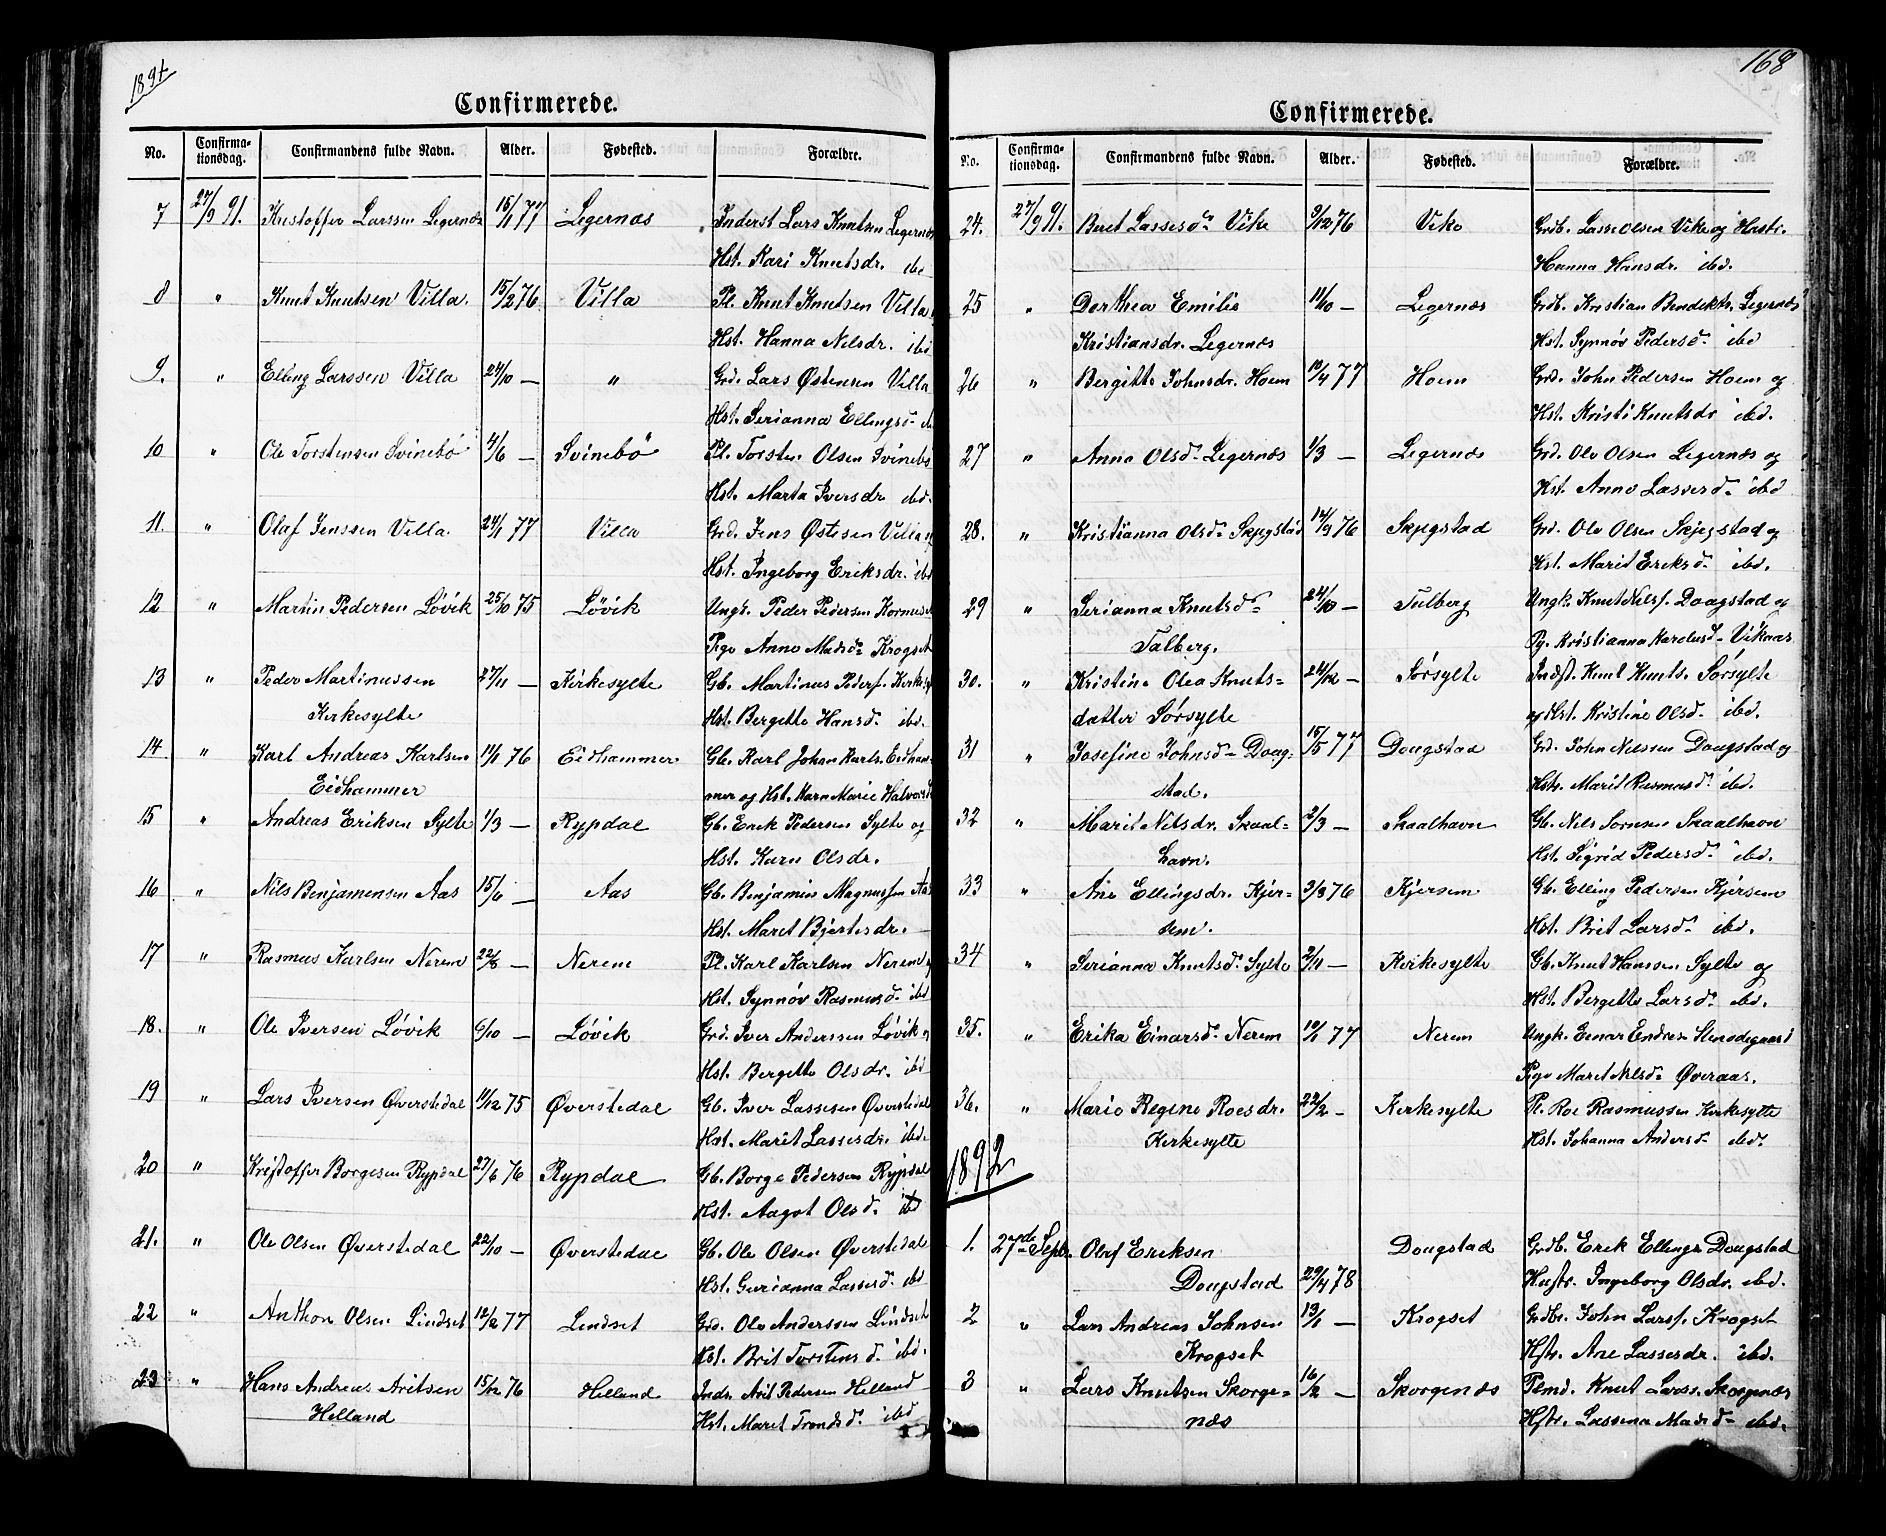 1891
Confirmerede.
No. Confirma-tionsdag. Confirmandens fulde Navn. Alder. Fødested. Forældre.
7 27/9 91. Kristoffer Larssen Legernæs 16/1 77 Legernæs Inderst Lars Knutsen Legernæs
Hst. Kari Knutsdr. ibd
8 " Knut Knutsen Villa. 15/2 76 Villa Pl. Knut Knutsen Villa
Hst. Hanna Nilsdr. ibd
9. " Elling Larssen Villa 24/10 — " Grd. Lars Østensen Villa
Hst. Serianna Ellingsd.
10 " Ole Torstensen Svinebö 4/6 — Svinebö Pl. Torsten Olsen Svinebö
Hst. Marta Iversdr. ibd.
11. " Olaf Jenssen Villa. 24/1 77 Villa Grd. Jens Østesen Villa og
Hst. Ingeborg Eriksdr. ibd
12 " Martin Pedersen Lövik 25/10 75 Lövik Ungk. Peder Pedersen
Pige Anne Madsd. Krogset
13 " Peder Martinussen 27/11 — Kirkesylte Gb. Martinus Peders.
Kirkesylte Hst. Bergitte Hansd. ibd.
14 " Karl Andreas Karlsen 11/1 76 Eidhammer Gb. Karl Johan Karls. Eidham-
Eidhammer mer og Hst. Karn Marie Halvorsd
15 " Andreas Eriksen Sylte 1/3 — Rypdal Gb. Erik Pedersen Sylte og
Hst. Karn Olsdr.
16 " Nils Benjamensen Aas 15/6 — Aas Gb. Benjamin Magnussen Aas
Hst. Maret Bjertesdr. —
17 " Rasmus Karlsen Nerem 22/8 — Nerem Pl. Karl Karlsen Nerem og
Hst. Synnöv Rasmusd. ibd
18. " Ole Iversen Lövik 6/10 — Lövik Grd. Iver Anderssen Lövik og
Hst. Bergitte Olsdr. ibd
19 " Lars Iversen Øverstedal 11/12 75 Øverstedal Gb. Iver Lassesen Øverstedal
Hst. Marit Lassesdr. ibd.
20 " Kristoffer Borgesen Rypdal 27/6 76 Rypdal Gb. Borge Pedersen Rypdal
Hst. Aagot Olsd. ibd
21. " Ole Olsen Øverstedal 22/10 — Øverstedal Gb. Ole Olsen Øverstedal
Hst. Gurianna Lassesd. ibd
22 " Anthon Olsen Lindset 12/2 77 Lindset Grd. Ole Anderssen Lindset
Hst. Brit Torstensd. ibd.
23 " Hans Andreas Aritsen 15/12 76 Helland Inds. Arit Pedersen Helland
Helland Hst. Maret Trondsd. ibd
168
Confirmerede.
No. Confirma-tionsdag. Confirmandens fulde Navn. Alder. Fødested. Forældre.
24. 27/9 91. Beret Lassesd. Vike 9/12 76 Vike Grdb. Lasse Olsen Vike og Hustr.
Hanna Hansdr. ibd.
25 " Dorthea Emilie 11/10 — Legernæs Grdb. Kristian Bendikts. Legernæs
Kristiansdr. Legernæs Hst. Synnöv Pedersd. ibd
26 " Bergitte Johnsdr. Hoem 10/4 77 Hoem Grd. John Pedersen Hoem og
Hst. Kristi Knutsdr ibd.
27 " Anna Olsd. Legernæs 1/3 — Legernæs Grd. Ole Olsen Legernæs og
Hst. Anne Lassesd. ibd
28. " Kristianna Olsd. Skjegstad 14/9 76 Skjegstad Grd. Ole Olsen Skjegstad og
Hst. Marit Eriksd. ibd.
29 " Serianna Knutsd. 24/10 — Talberg Ungk. Knut Nilss. Daagstad og
Talberg. Pg. Kristianna Karelusd. Vikaas
30. " Kristine Olea Knuts= 24/12 — Sörsylte Indst. Knut Knuts. Sörsylte
datter Sörsylte og Hst. Kristine Olsd. ibd.
31 " Josefine Johnsd. Doug- 15/5 77 Dougstad Grd. John Nilssen Dougstad og
stad. Hstr. Marit Rasmusd. ibd.
32 " Marit Nilsdr. Skaal= 2/3 — Skaalhavn Gb. Nils Sörnsen Skaalhavn
havn. Hst. Sigrid Pedersd. ibd.
33 " Ane Ellingsdr. Kjer- 3/3 76 Kjersem Gb. Elling Pedersen Kjersem
sem. Hst. Brit Larsd. ibd.
34 " Serianna Knutsd. Sylte 2/11 — Kirkesylte Gb. Knut Hanssen Sylte og
Hst. Bergitte Larsd. ibd.
35. " Erika Einarsd. Nerem 10/1 77 Nerem Ungk. Einar Endres. Stensdegaard
Pige Maret Nilsd. Øveraas.
36. " Marie Regine Roesdr. 22/2 — Kirkesylte Pl. Roe Rasmussen Kirkesylte
Kirkesylte Hst. Johanna Andersd. ibd.
1892
1. 27de Septr. Oluf Eriksen Dougstad Grdb. Erik Ellings. Dougstad
Dougstad 29/4 78 Hustr. Ingeborg Olsdr. ibd.
2 " Lars Andreas Johnsen 13/1 — Krogset Grdbr. John Larss. Krogset
Krogset Hstr. Ane Lassesdr. ibd.
3 " Lars Knutsen Skorge= 16/2 — Skorgenæs Plmd. Knut Larss. Skorgenæs
næs Hstr. Lassena Madsd. ibd.